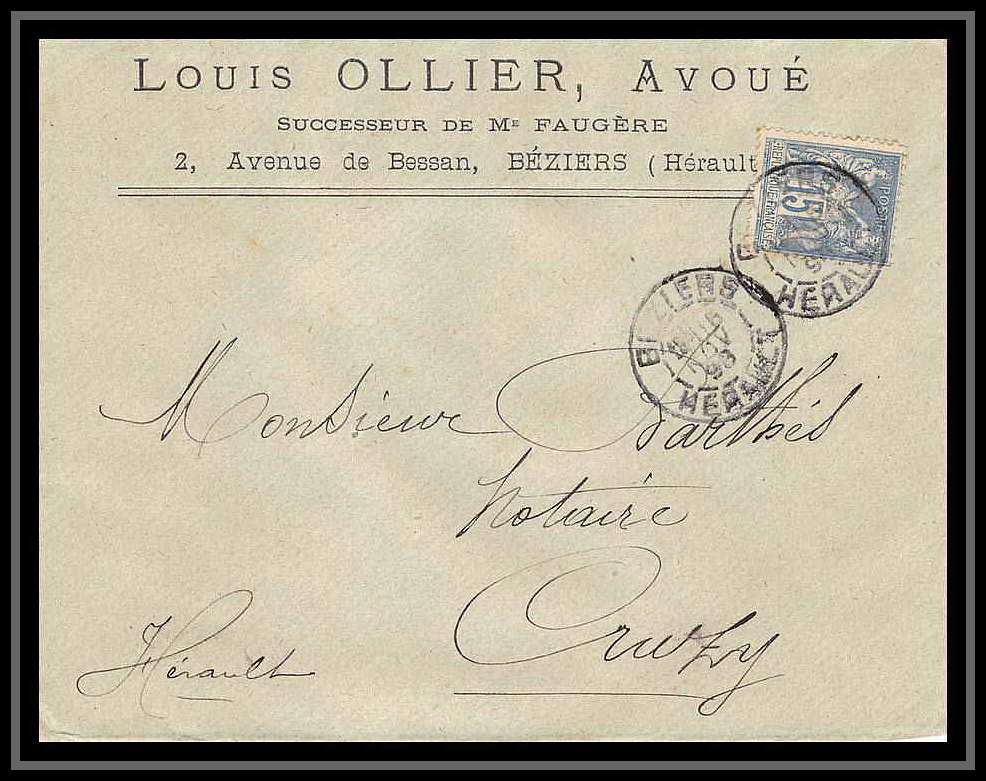 LOUIS OLLIER, AVOUÉ
SUCCESSEUR DE ME FAUGÈRE
2, Avenue de Bessan, BÉZIERS (Hérault
15
POSTE
REPUBLIQUE FRANÇAISE
HERAULT
BEZIERS
NOV
93
HERAULT
Monsieur Barthés
Notaire
Cruzy
Hérault